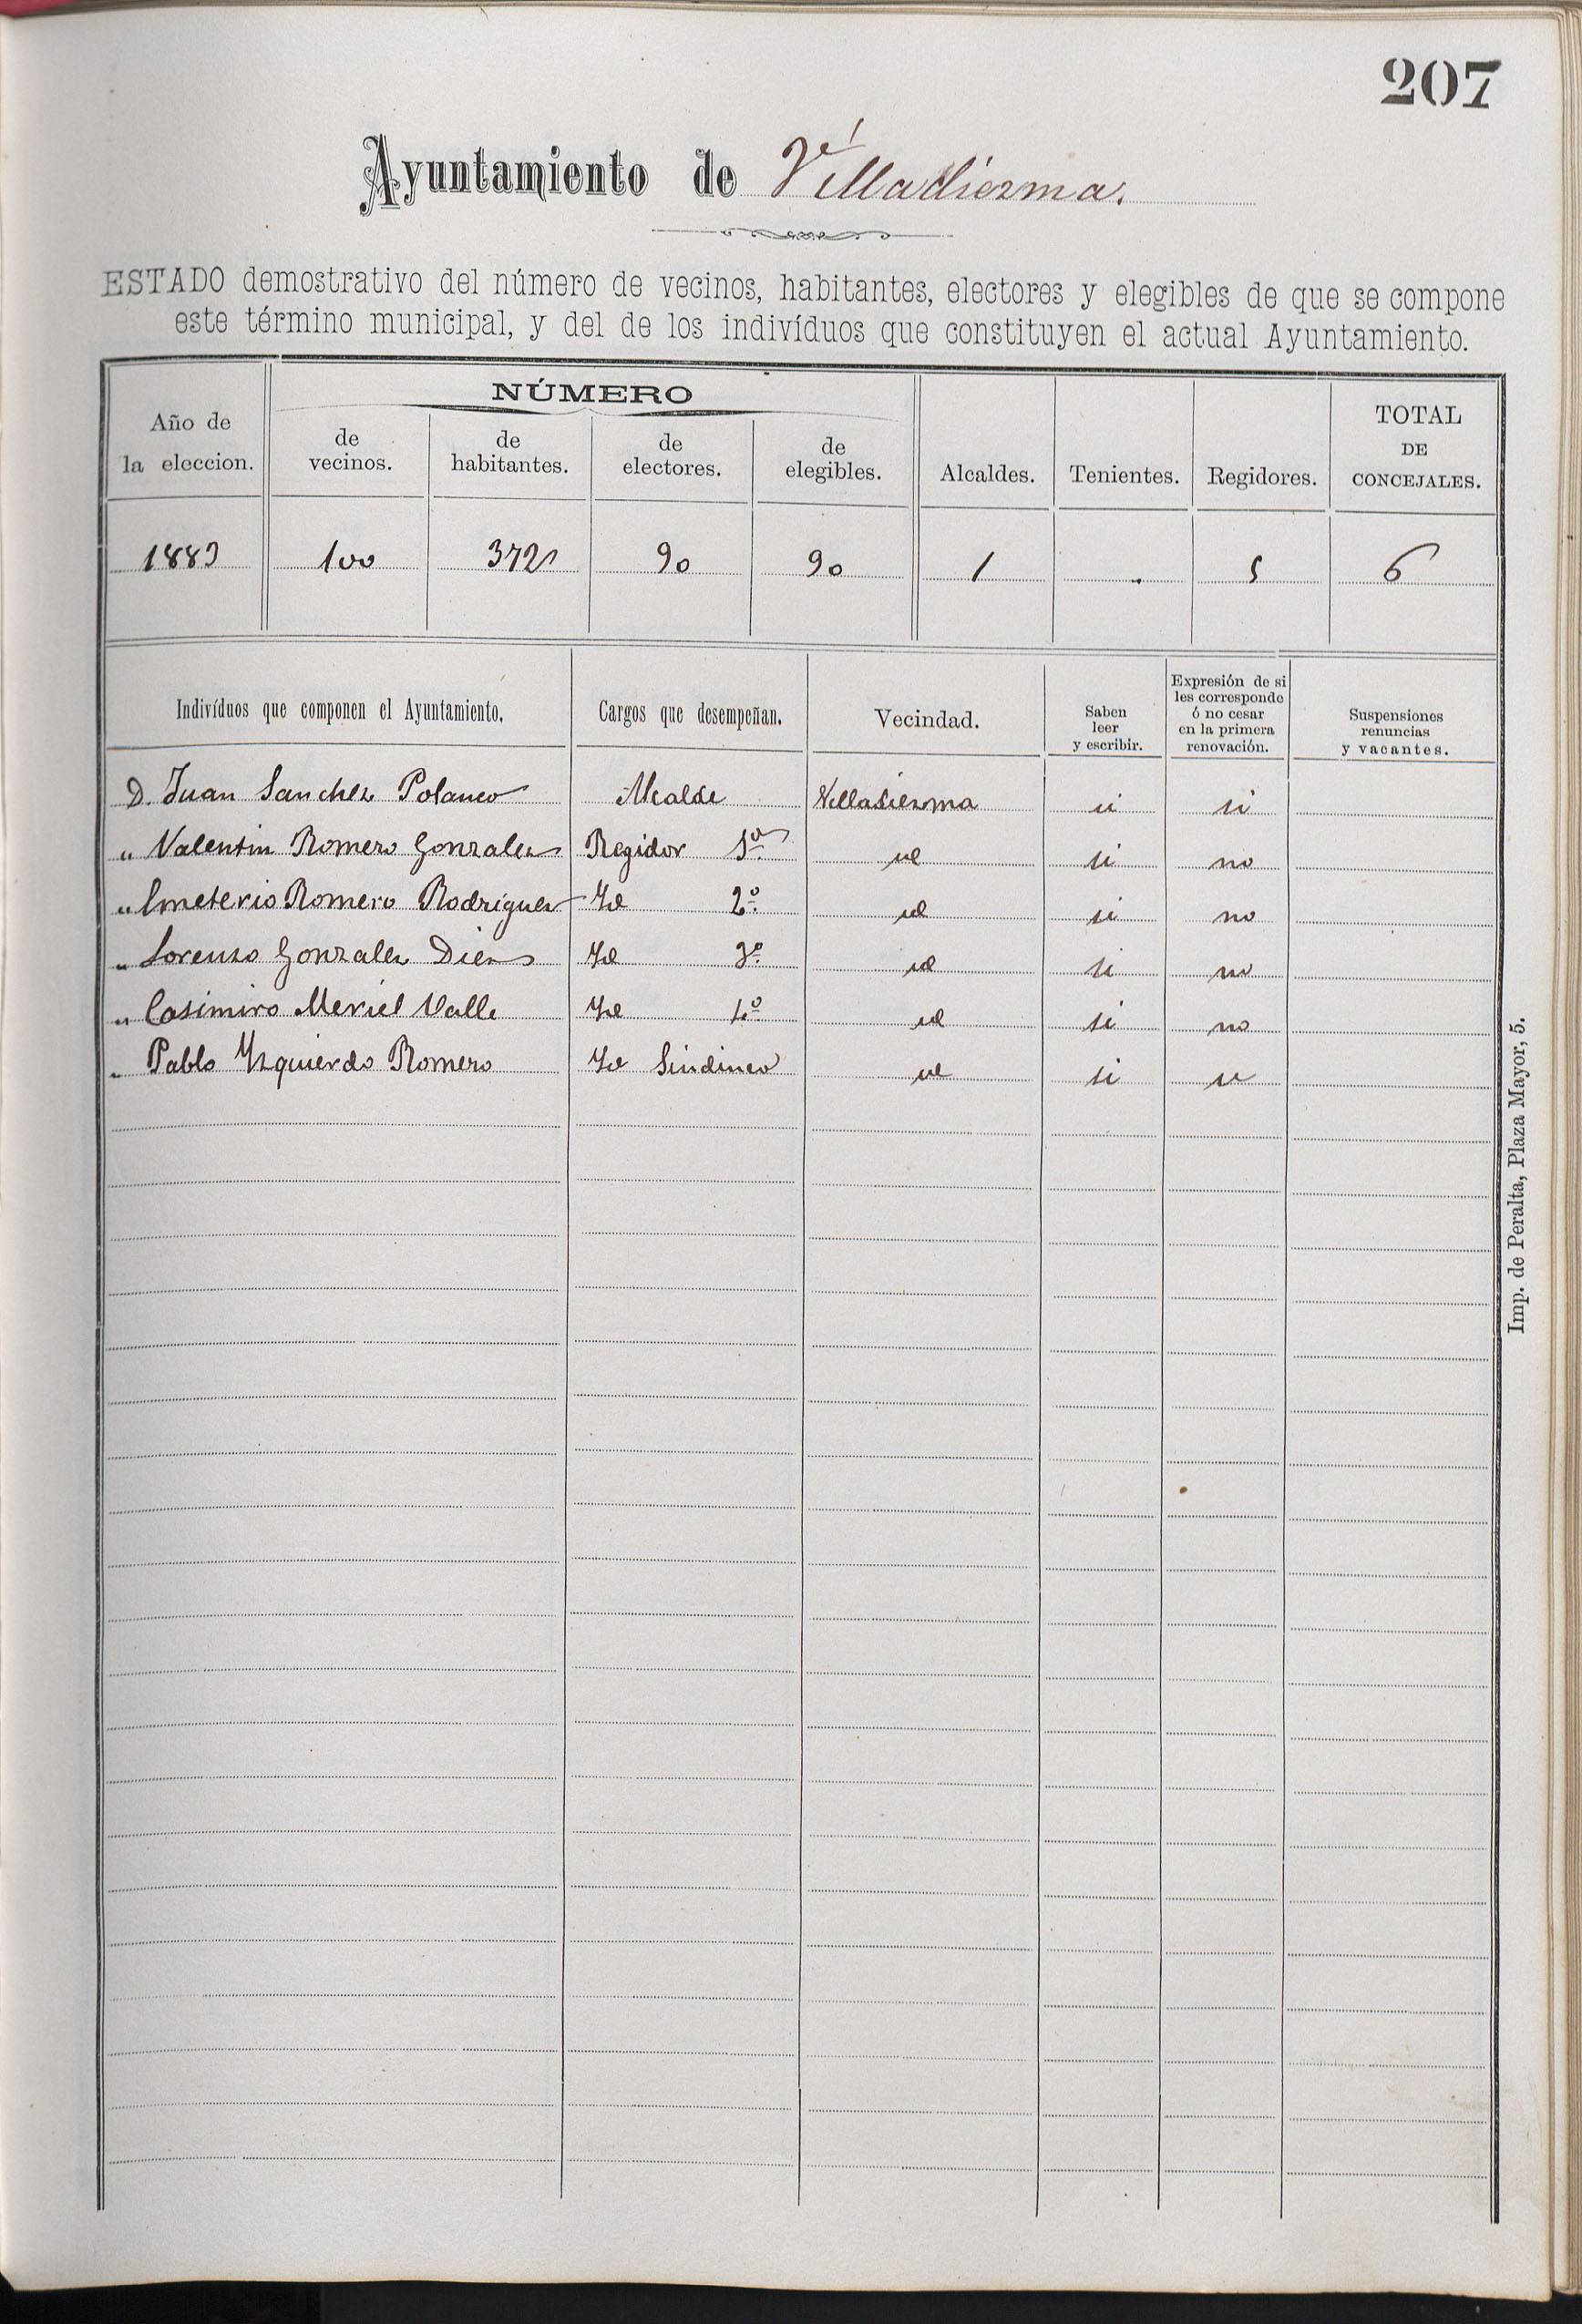 207
Ayuntamiento de Villadiezma.
ESTADO demostrativo del número de vecinos, habitantes, electores y elegibles de que se compone
este término municipal, y del de los indivíduos que constituyen el actual Ayuntamiento.
Año de la eleccion. NÚMERO de vecinos. de habitantes. de electores. de elegibles. Alcaldes. Tenientes. Regidores. TOTAL DE CONCEJALES.
1883 100 372 90 90 1 . 5 6
Indivíduos que componen el Ayuntamiento. Cargos que desempeñan. Vecindad. Saben leer y escribir. Expresión de si les corresponde ó no cesar en la primera renovación. Suspensiones renuncias y vacantes.
D. Juan Sanchez Polanco Alcalde Villadiezma si si
" Valentin Romero Gonzalez Regidor 1º id si no
" Emeterio Romero Rodriguez Yd 2º id si no
" Lorenzo Gonzalez Diez Yd 3º id si no
" Casimiro Meriel Valle Yd 4º id si no
" Pablo Yzquierdo Romero Yd Sindico id si si
Imp. de Peralta, Plaza Mayor, 5.